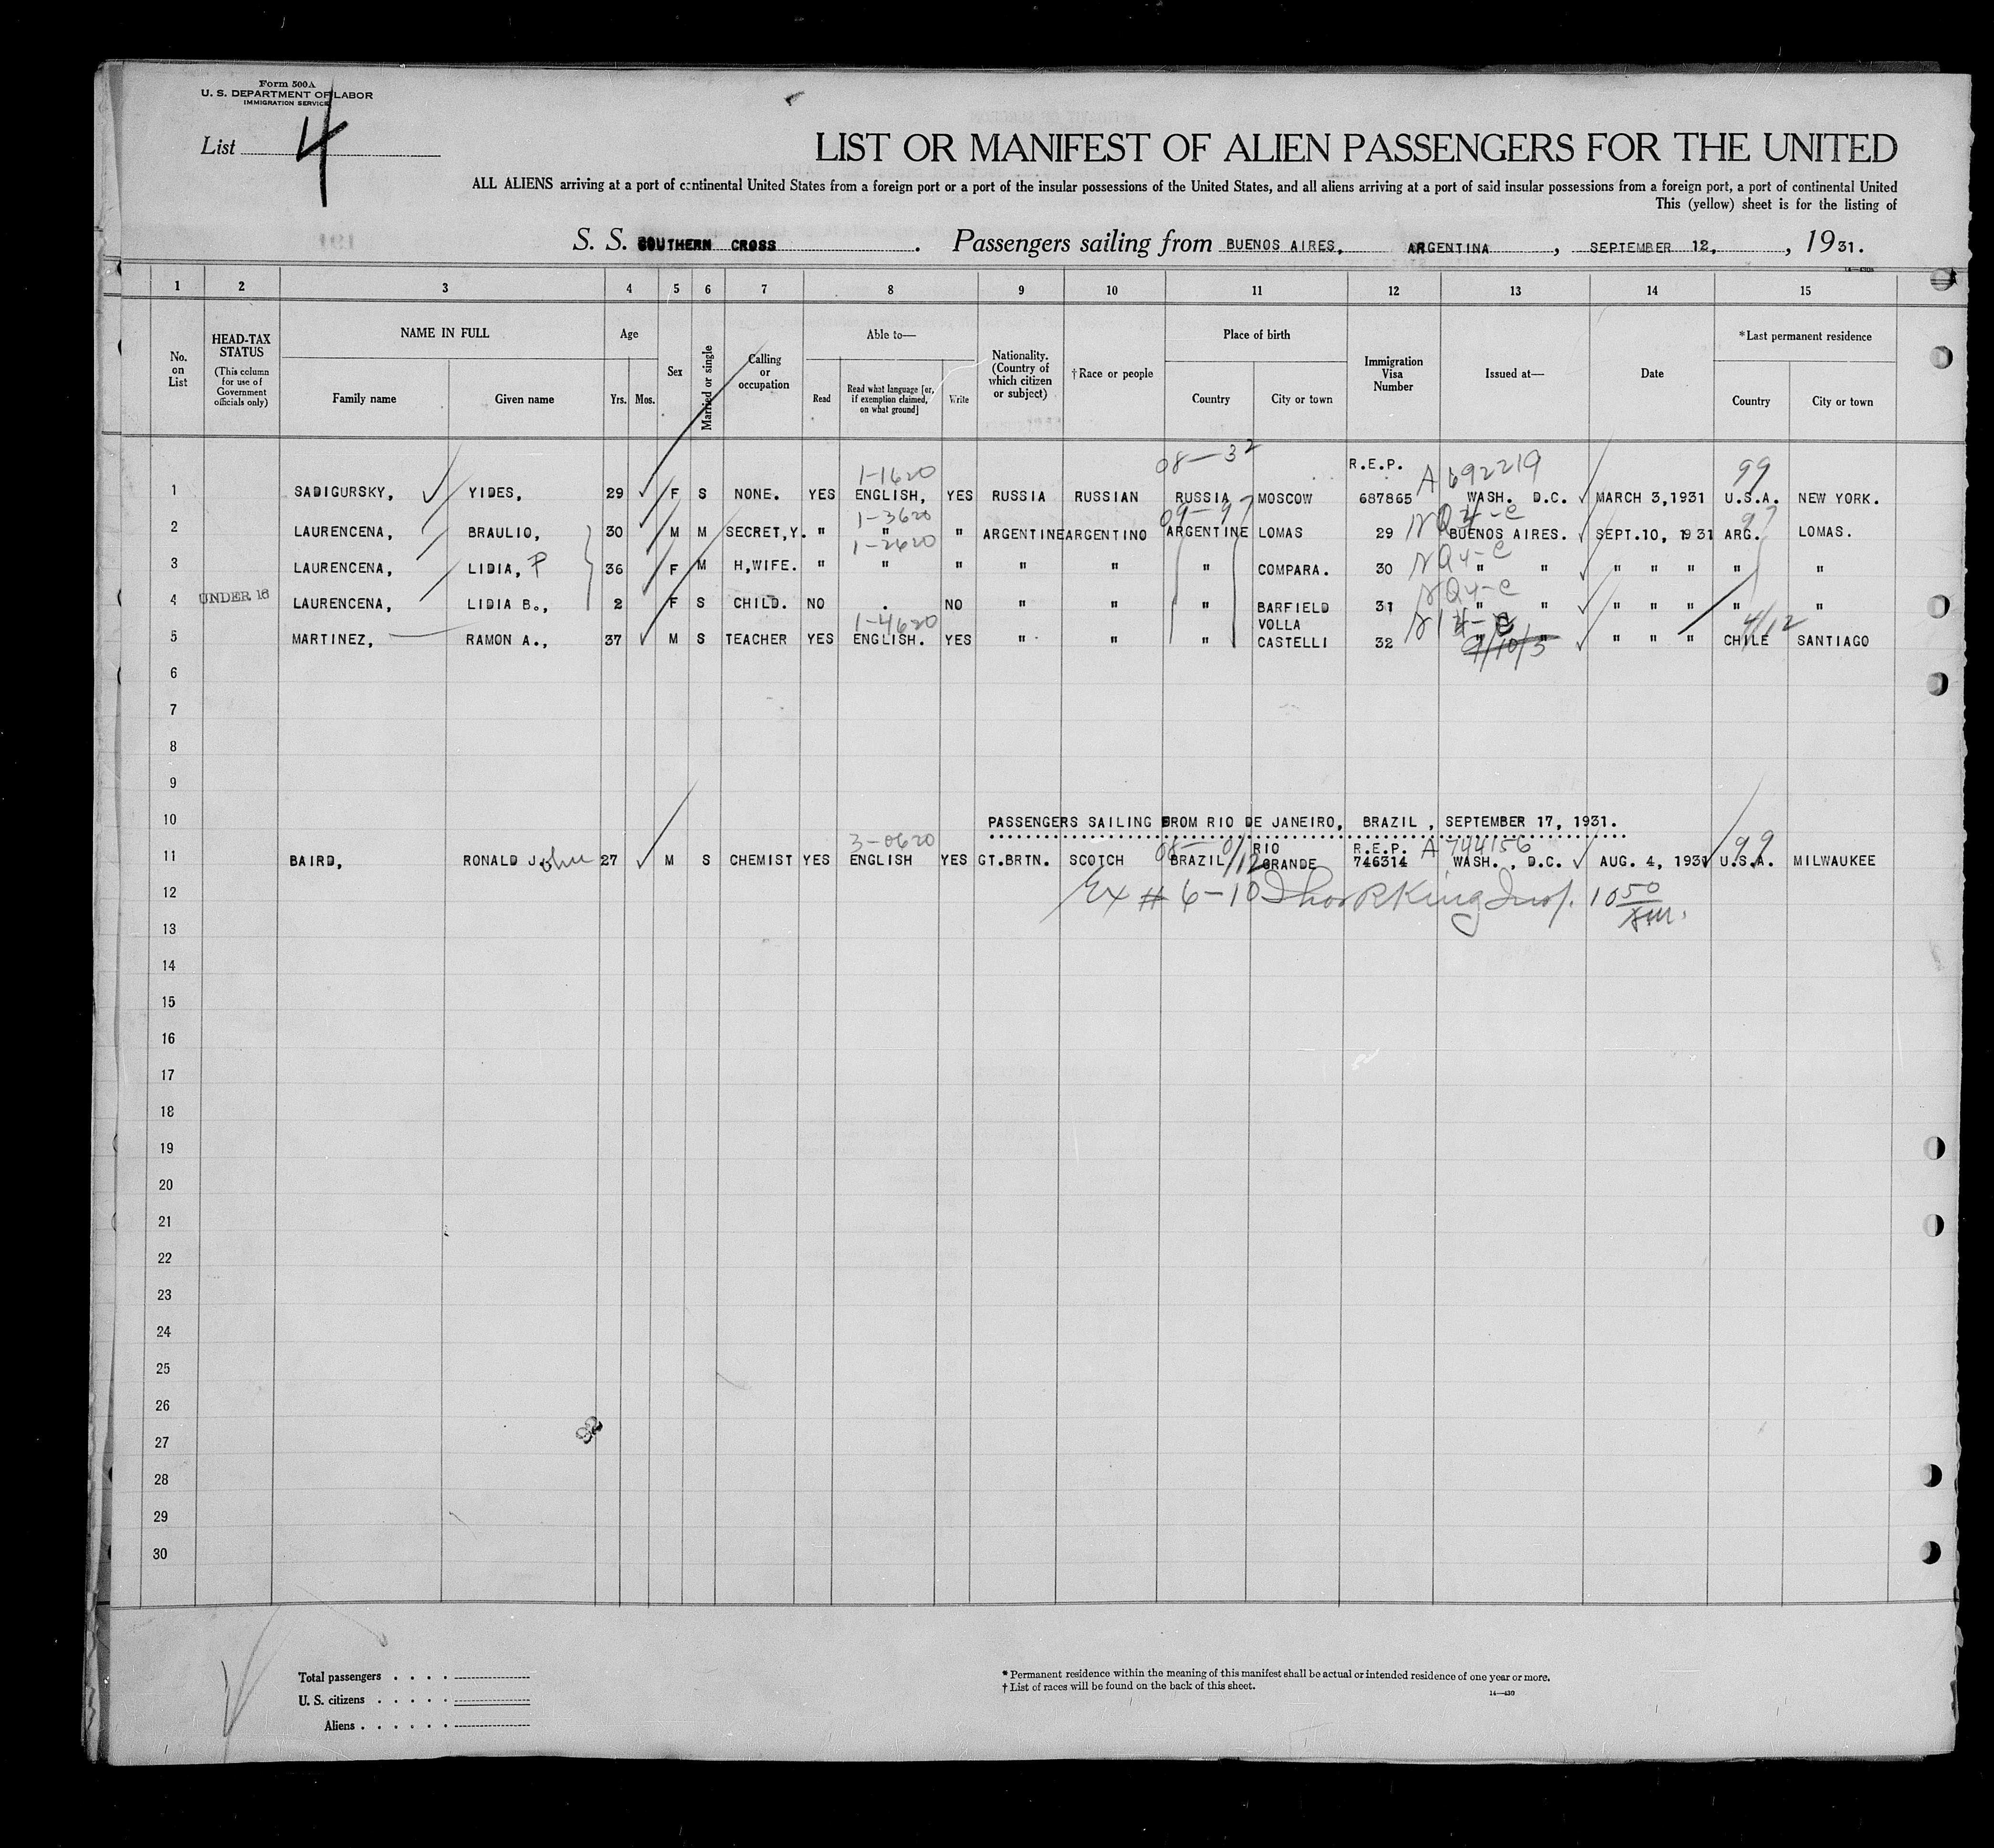 Form 500A
U. S. DEPARTMENT OF LABOR
IMMIGRATION SERVICE
List 4
LIST OR MANIFEST OF ALIEN PASSENGERS FOR THE UNITED
ALL ALIENS arriving at a port of continental United States from a foreign port or a port of the insular possessions of the United States, and all aliens arriving at a port of said insular possessions from a foreign port, a port of continental United
This (yellow) sheet is for the listing of
S. S. SOUTHERN CROSS . Passengers sailing from BUENOS AIRES, ARGENTINA , SEPTEMBER 12, , 1931.
1 2 3 4 5 6 7 8 9 10 11 12 13 14 15
No. on List
HEAD-TAX STATUS
(This column for use of Government officials only)
NAME IN FULL
Family name Given name
Age
Yrs. Mos.
Sex
Married or single
Calling or occupation
Able to—
Read
Read what language [or, if exemption claimed, on what ground]
Write
Nationality. (Country of which citizen or subject)
†Race or people
Place of birth
Country City or town
Immigration Visa Number
Issued at—
Date
*Last permanent residence
Country City or town
1-1620 08-32 R.E.P. A 692219 99
1 SADIGURSKY, YIDES, 29 F S NONE. YES ENGLISH, YES RUSSIA RUSSIAN RUSSIA MOSCOW 687865 WASH. D.C. MARCH 3,1931 U.S.A. NEW YORK.
1-3620 09-97 97
2 LAURENCENA, BRAULIO, 30 M M SECRET,Y. " " " ARGENTINE ARGENTINO ARGENTINE LOMAS 29 BUENOS AIRES. SEPT.10, 1931 ARG. LOMAS.
1-2620
3 LAURENCENA, LIDIA, P 36 F M H,WIFE. " " " " " " COMPARA. 30 " " " " " " "
4 UNDER 16 LAURENCENA, LIDIA B., 2 F S CHILD. NO . NO " " " BARFIELD 31 " " " " " " "
1-4620 VOLLA 4/12
5 MARTINEZ, RAMON A., 37 M S TEACHER YES ENGLISH. YES " " " CASTELLI 32 " " " " " CHILE SANTIAGO
9/10/3
6
7
8
9
10 PASSENGERS SAILING FROM RIO DE JANEIRO, BRAZIL , SEPTEMBER 17, 1931.
3-0620 RIO R.E.P. A 744156 99
11 BAIRD, RONALD John 27 M S CHEMIST YES ENGLISH YES GT.BRTN. SCOTCH BRAZIL GRANDE 746314 WASH. , D.C. AUG. 4, 1931 U.S.A. MILWAUKEE
12 Ex # 6-10 King Insp. 10 50
13
14
15
16
17
18
19
20
21
22
23
24
25
26
27
28
29
30
Total passengers . . . .
U. S. citizens . . . . .
Aliens . . . . . .
* Permanent residence within the meaning of this manifest shall be actual or intended residence of one year or more.
† List of races will be found on the back of this sheet.
14—430